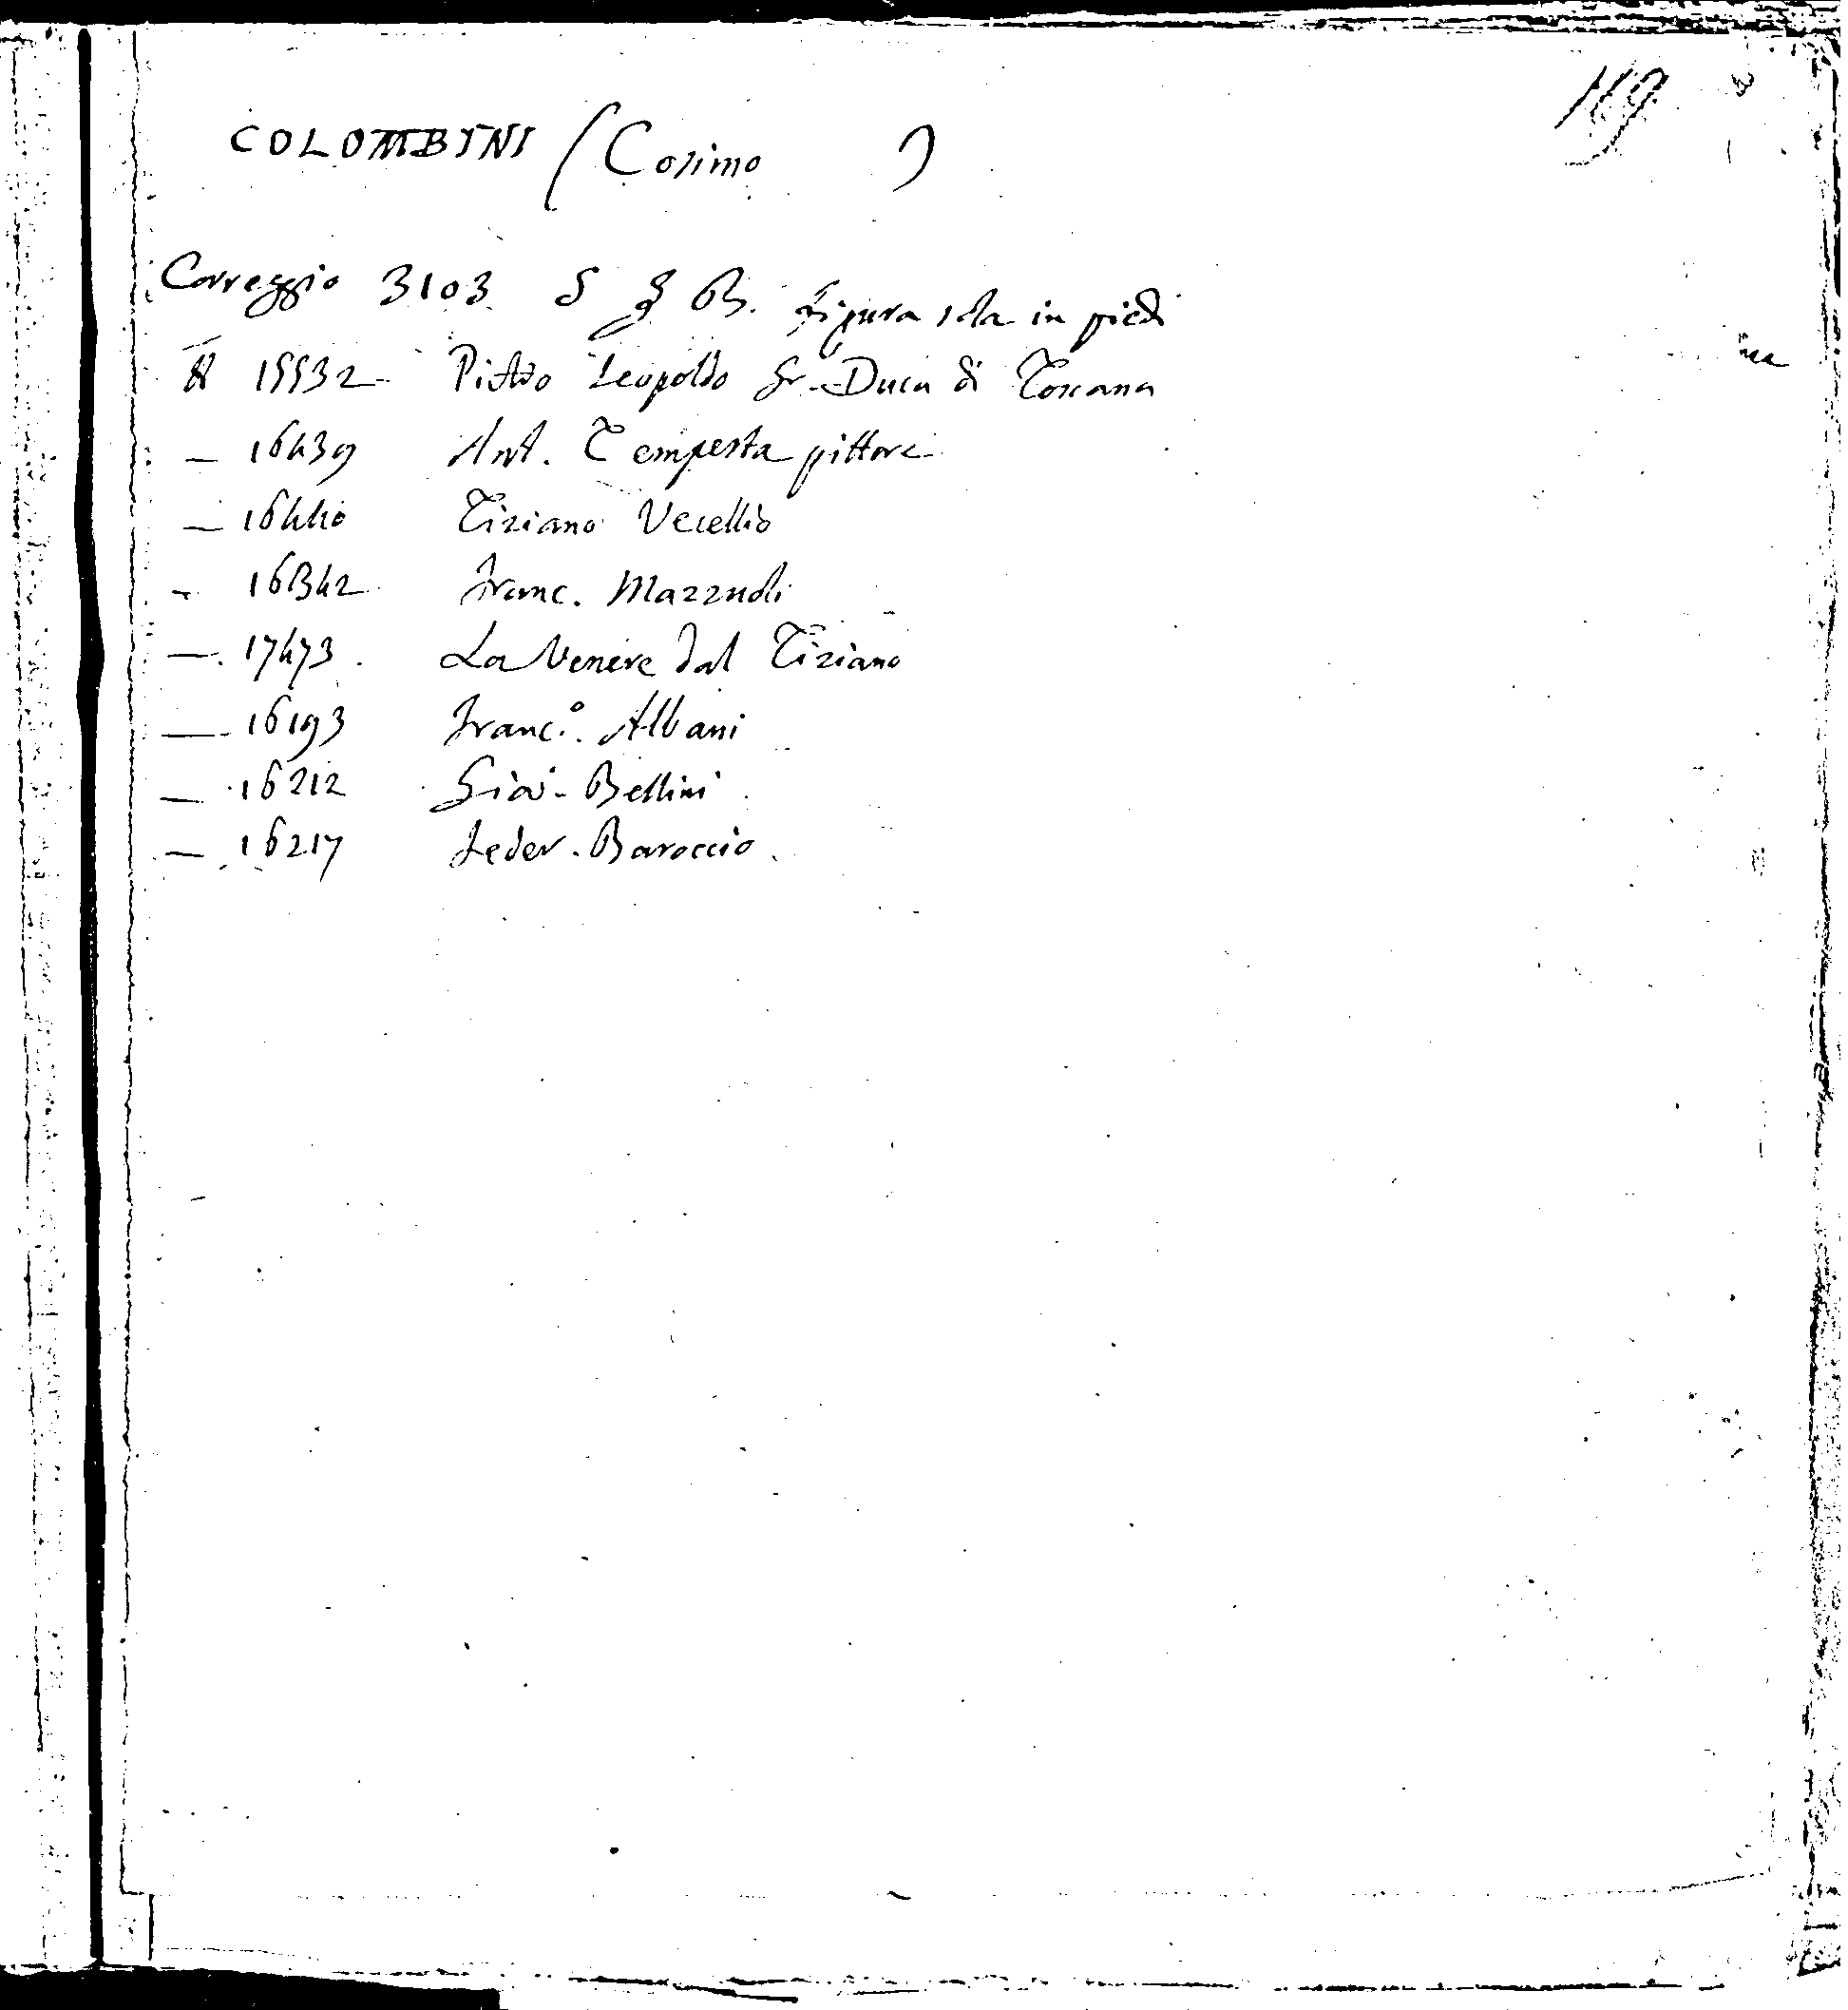 119
COLOMBINI (Cosimo )
Correggio 3103 S G B. figura sola in piedi
15532 Pietro Leopoldo Gr. Duca di Toscana
— 16439 Ant. Tempesta pittore
— 16440 Tiziano Vecellio
— 16342 Franc. Mazzuoli
— 17473. La Venere dal Tiziano
— 16193 Franc.º Albani
— 16212 Gio: Bellini
— 16217 Feder. Baroccio.